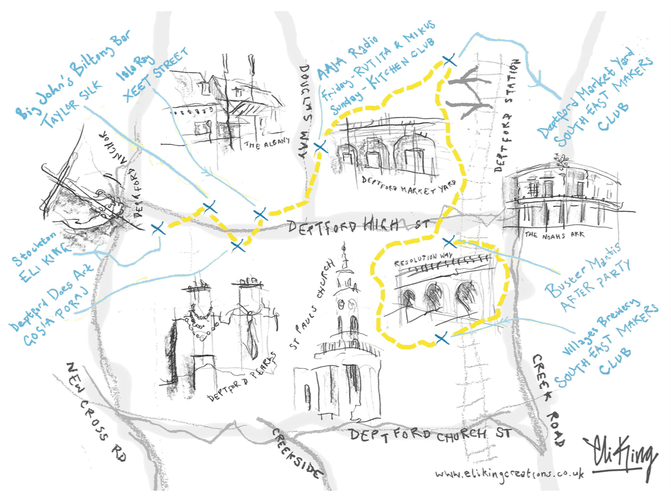 Big John's Biltong Bar
TAYLOR SILK
XEET STREET
AAJA Radio
Friday - RUTITA & MIKUS
Sunday - KITCHEN CLUB
DOUGLAS WAY
DEPTFORD STATION
Deptford Market Yard
SOUTH EAST MAKERS
CLUB
THE ALBANY
DEPTFORD MARKET YARD
DEPTFORD ANCHOR
DEPTFORD HIGH ST
THE NOAHS ARK
Stockton
ELI KING
Deptford Does Art
GOSIA PORAJ
ST PAULS CHURCH
RESOLUTION WAY
Buster Mantis
AFTER PARTY
Villages Brewery
SOUTH EAST MAKERS
CLUB
DEPTFORD PEARLS
NEW CROSS RD
CREEKSIDE
DEPTFORD CHURCH ST
CREEK ROAD
Eli King
www.elikingcreations.co.uk